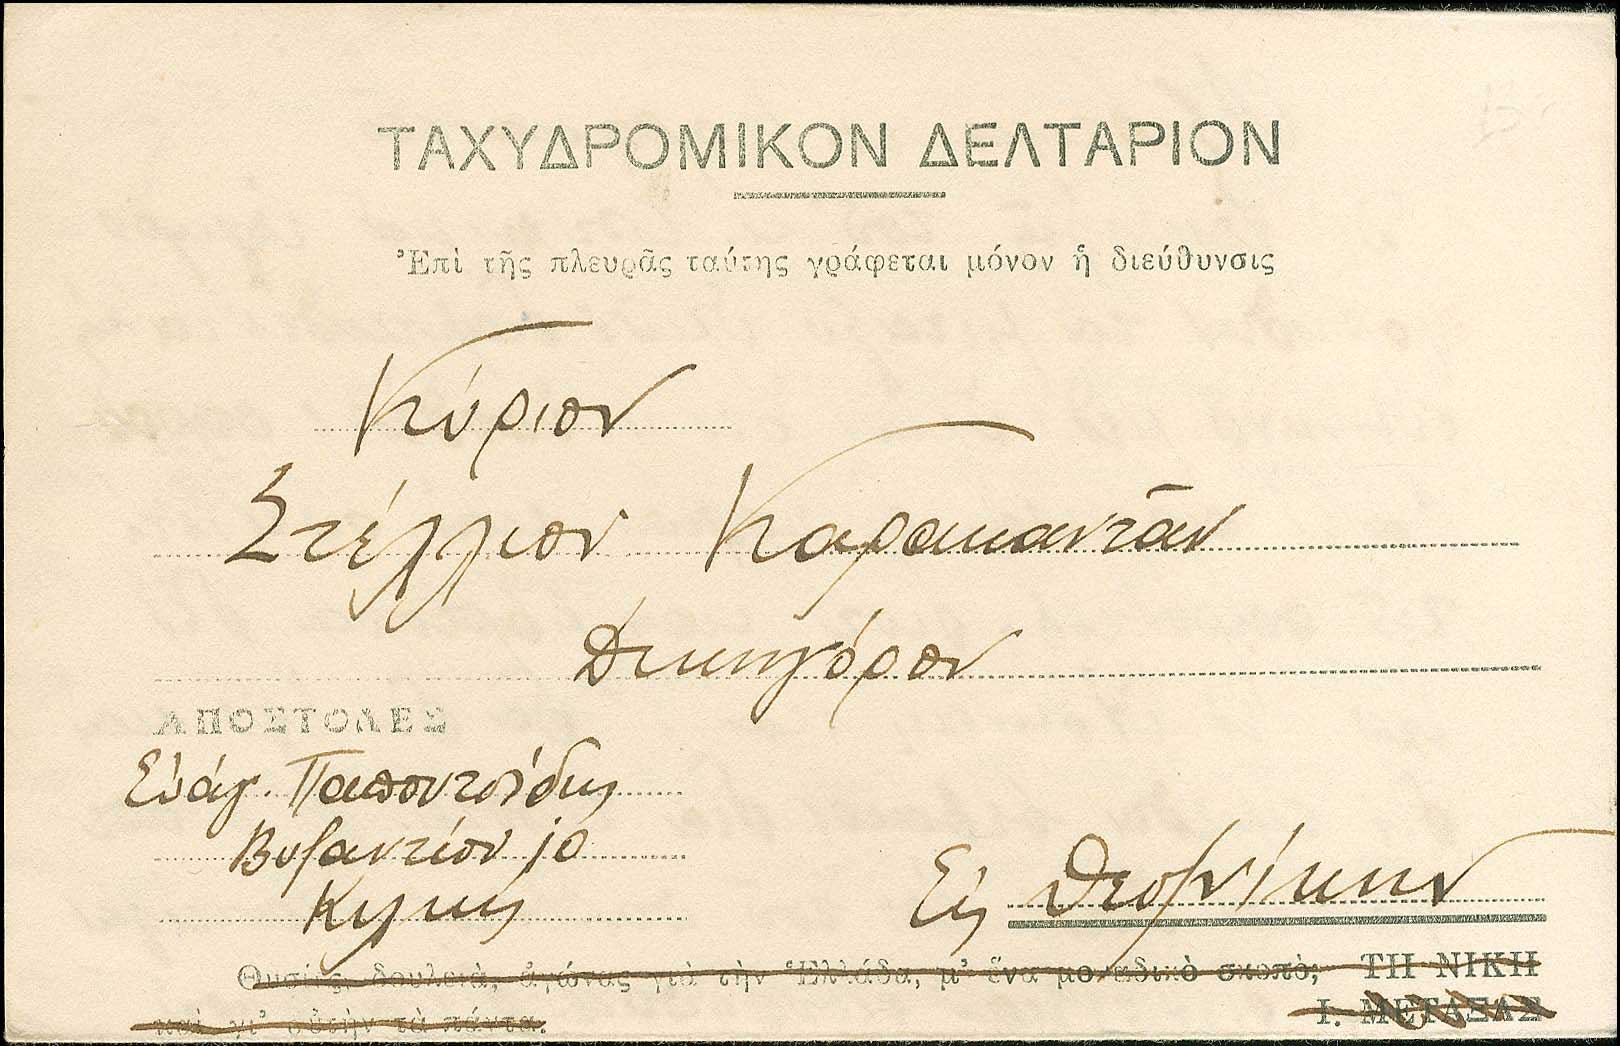 ΤΑΧΥΔΡΟΜΙΚΟΝ ΔΕΛΤΑΡΙΟΝ
Ἐπὶ τῆς πλευρᾶς ταύτης γράφεται μόνον ἡ διεύθυνσις
Κύριον
Στέλλιον Καρακαντᾶν
Δικηγόρον
ΑΠΟΣΤΟΛΕΣ
Εὐάγ. Παπουτσίδης
Βυζαντίου 10
Κιλκίς
Εἰς Θεσ/νίκην
Θυσίες, δουλειά, ἀγώνας γιὰ τὴν Ἑλλάδα, μ' ἕνα μοναδικὸ σκοπό; ΤΗ ΝΙΚΗ
καὶ γι' αὐτὴν τὰ πάντα.
Ι. ΜΕΤΑΞΑΣ